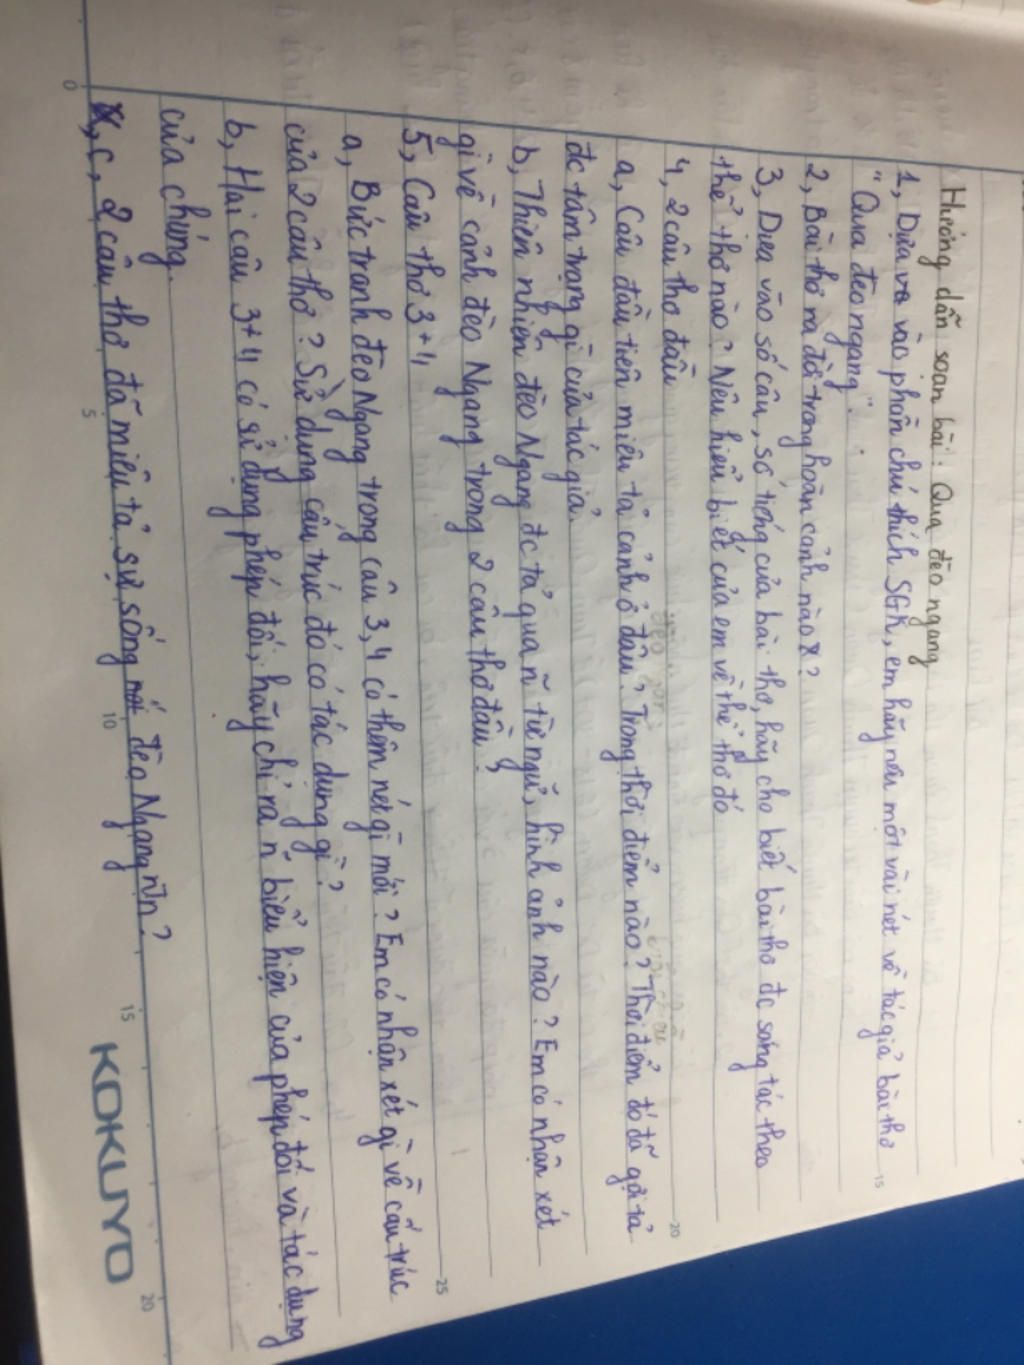 Hướng dẫn soạn bài: Qua đèo ngang
1, Dựa vào phần chú thích SGK, em hãy nêu một vài nét về tác giả bài thơ
"Qua đèo ngang".
2, Bài thơ ra đời trong hoàn cảnh nào?
3, Dựa vào số câu, số tiếng của bài thơ, hãy cho biết bài thơ đc sáng tác theo
thể thơ nào? Nêu hiểu biết của em về thể thơ đó
4, 2 câu thơ đầu
a, Câu đầu tiên miêu tả cảnh ở đâu? Trong thời điểm nào? Thời điểm đó đã gợi tả
đc tâm trạng gì của tác giả.
b, Thiên nhiên đèo Ngang đc tả qua ~ từ ngữ, hình ảnh nào? Em có nhận xét
gì về cảnh đèo Ngang trong 2 câu thơ đầu?
5, Câu thơ 3+4
a, Bức tranh đèo Ngang trong câu 3, 4 có thêm nét gì mới? Em có nhận xét gì về cấu trúc
của 2 câu thơ? Sử dụng cấu trúc đó có tác dụng gì?
b, Hai câu 3+4 có sử dụng phép đối, hãy chỉ ra ~ biểu hiện của phép đối và tác dụng
của chúng.
c, 2 câu thơ đã miêu tả sự sống đèo Ngang ntn?
KOKUYO
0
5
10
15
20
15
20
25